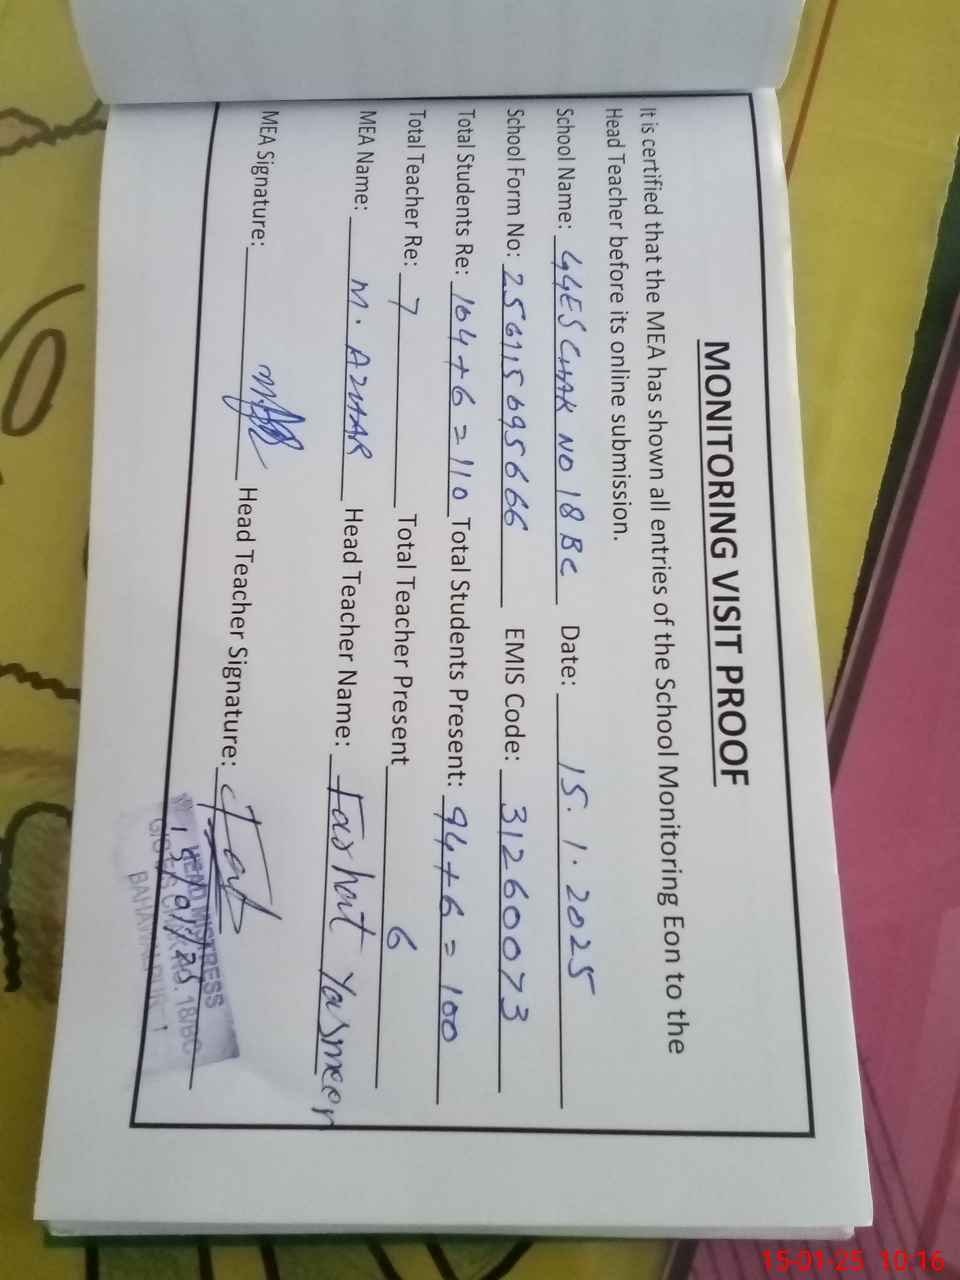 MONITORING VISIT PROOF
It is certified that the MEA has shown all entries of the School Monitoring Eon to the
Head Teacher before its online submission.
School Name: GGES CHAK NO 18 BC Date: 15.1.2025
School Form No: 256115695666 EMIS Code: 31260073
Total Students Re: 104+6=110 Total Students Present: 94+6=100
Total Teacher Re: 7 Total Teacher Present 6
MEA Name: M. AZHAR Head Teacher Name: Farhat Yasmeen
MEA Signature: Head Teacher Signature:
HEAD MISTRESS
15/01/25
CHAK NO. 18/BC
BAHAWALPUR
15-01-25 10:16